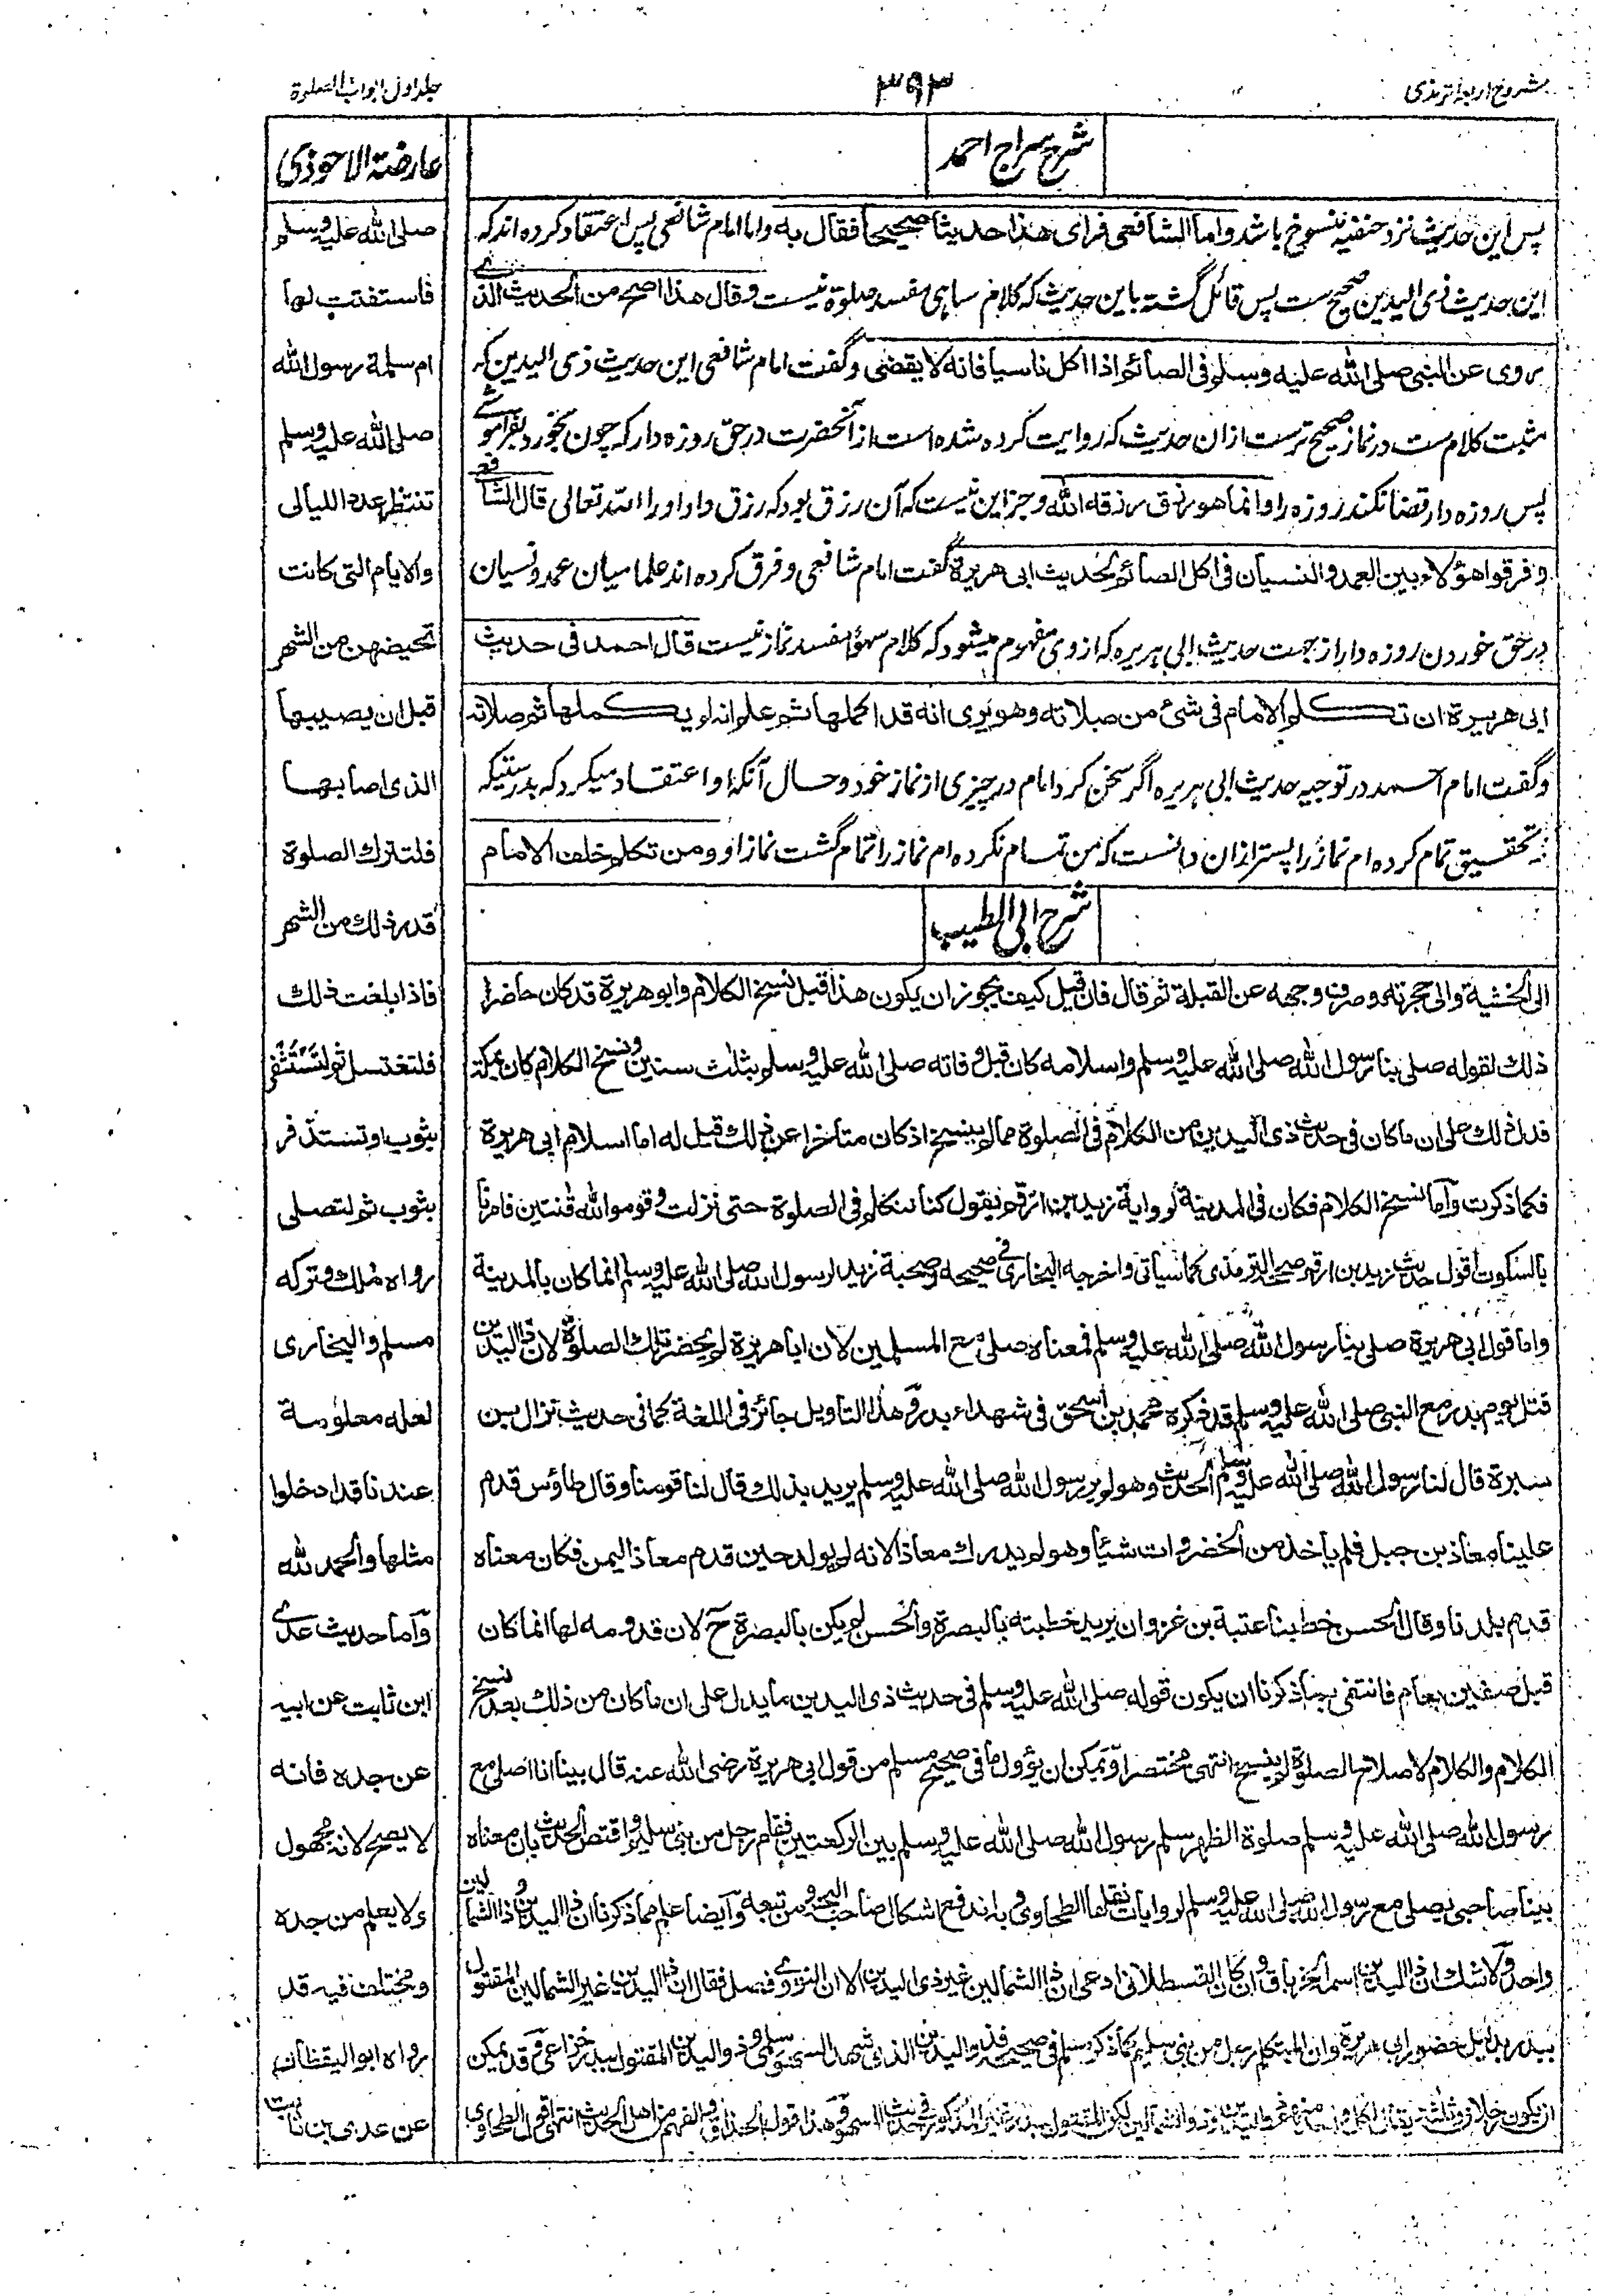 شروح اربعہ ترمذی
۳۹۳
جلد اول ابواب الصلوة
شرح سراج احمد
پس این حدیث نزد حنفیہ منسوخ باشد واما الشافعی فرای هذا حدیثا صحیحا فقال به واما امام شافعی پس اعتقاد کرده اند که
این حدیث ذی الیدین صحیح ست پس قائل گشته باین حدیث که کلام ساهی مفسد صلوة نیست وقال هذا اصح من الحدیث الذی
روی عن النبی صلی الله علیه وسلم فی الصائم اذا اکل ناسیا فانه لا یقضی وگفت امام شافعی این حدیث ذی الیدین که
مثبت کلام ست در نماز صحیح ترست ازان حدیث که روایت کرده شده است از آنحضرت در حق روزه دار که چون بخورد بفراموشی
پس روزه دار قضا نکند روزه را وانما هو رزق رزقه الله وجز این نیست که آن رزق بود که رزق داد او را الله تعالی قال الشافعی
وفرقوا هؤلاء بین العمد والنسیان فی اکل الصائم لحدیث ابی هریرة گفت امام شافعی وفرق کرده اند علما میان عمد ونسیان
در حق خوردن روزه دار از جهت حدیث ابی هریره که از وی مفهوم میشود که کلام سهوا مفسد نماز نیست قال احمد فی حدیث
ابی هریرة ان تکلم الامام فی شیء من صلاته وهو یری انه قد اکملها ثم علم انه لم یکملها ثم صلاته
وگفت امام احمد در توجیه حدیث ابی هریره اگر سخن کرد امام در چیزی از نماز خود وحال آنکه او اعتقاد میکرد که بدرستیکه
تحقیق تمام کرده ام نماز را پستر ازان دانست که من تمام نکرده ام نماز را تمام گشت نماز او ومن تکلم خلف الامام
شرح ابی الطیب
الی الخشبة والی حجرته وصرف وجهه عن القبلة ثم قال فان قیل کیف یجوز ان یکون هذا قبل نسخ الکلام وابو هریرة قد کان حاضرا
ذلك لقوله صلی بنا رسول الله صلی الله علیه وسلم واسلامه کان قبل وفاته صلی الله علیه وسلم بثلث سنین ونسخ الکلام کان بمکة
فدل ذلك علی ان ما کان فی حدیث ذی الیدین من الکلام فی الصلوة مما لم ینسخ اذ کان متاخرا عن ذلك قیل له اما اسلام ابی هریرة
فکما ذکرت واما نسخ الکلام فکان فی المدینة لروایة زید بن ارقم یقول کنا نتکلم فی الصلوة حتی نزلت وقوموا لله قنتین فامرنا
بالسکوت اقول حدیث زید بن ارقم صححه الترمذی کما سیاتی واخرجه البخاری فی صحیحه وصحبة زید لرسول الله صلی الله علیه وسلم انما کان بالمدینة
واما قول ابی هریرة صلی بنا رسول الله صلی الله علیه وسلم فمعناه صلی مع المسلمین لان ابا هریرة لم یحضر تلك الصلوة لان ذا الیدین
قتل یوم بدر مع النبی صلی الله علیه وسلم قد ذکره محمد بن اسحق فی شهداء بدر وهذا التاویل جائز فی اللغة کما فی حدیث نزال بن
سبرة قال لنا رسول الله صلی الله علیه وسلم الحدیث وهو لم یر رسول الله صلی الله علیه وسلم یرید بذلك قال لقومنا وقال طاؤس قدم
علینا معاذ بن جبل فلم یاخذ من الخضروات شیئا وهو لم یدرك معاذا لانه لم یولد حین قدم معاذ الیمن فکان معناه
قدم بلدنا وقال الحسن خطبنا عتبة بن غزوان یرید خطبته بالبصرة والحسن لم یکن بالبصرة ح لان قدومه لها انما کان
قبل صفین بعام فانتفی بما ذکرنا ان یکون قوله صلی الله علیه وسلم فی حدیث ذی الیدین ما یدل علی ان ما کان من ذلك بعد نسخ
الکلام والکلام لاصلاح الصلوة لم ینسخ انتهی مختصرا ویمکن ان یؤول ما فی صحیح مسلم من قول ابی هریرة رضی الله عنه قال بینا انا اصلی مع
رسول الله صلی الله علیه وسلم صلوة الظهر سلم رسول الله صلی الله علیه وسلم بین الرکعتین فقام رجل من بنی سلیم واقتص الحدیث بان معناه
بینا صاحبی یصلی مع رسول الله صلی الله علیه وسلم لروایات نقلها الطحاوی وبه اندفع اشکال صاحب البحر ومن تبعه وایضا علم مما ذکرنا ان ذا الیدین وذا الشمالین
واحد ولا شك ان ذا الیدین اسمه الخرباق وان کان القسطلانی ادعی ان ذا الشمالین غیر ذی الیدین الا ان النووی فصل فقال ان ذا الیدین غیر الشمالین المقتول
ببدر بدلیل حضور ابی هریرة وان المتکلم رجل من بنی سلیم کما ذکر مسلم فی صحیحه فذو الیدین الذی شهد السهو سلمی وذو الیدین المقتول ببدر خزاعی وقد یمکن
عارضة الاحوذی
صلی الله علیه وسلم
فاستفتت لها
ام سلمة رسول الله
صلی الله علیه وسلم
تنتظر عدد اللیالی
والایام التی کانت
تحیضهن من الشهر
قبل ان یصیبها
الذی اصابها
فلتترك الصلوة
قدر ذلك من الشهر
فاذا بلغت ذلك
فلتغتسل ثم لتستثفر
بثوب او تستذفر
بثوب ثم لتصلی
رواه ملك وترکه
مسلم والبخاری
لعله معلومة
عندنا قد ادخلوا
مثلها والحمد لله
واما حدیث عدی
ابن ثابت عن ابیه
عن جده فانه
لا یصح لانه مجهول
ولا یعلم من جده
ومختلف فیه قد
رواه ابو الیقظان
عن عدی بن ثابت